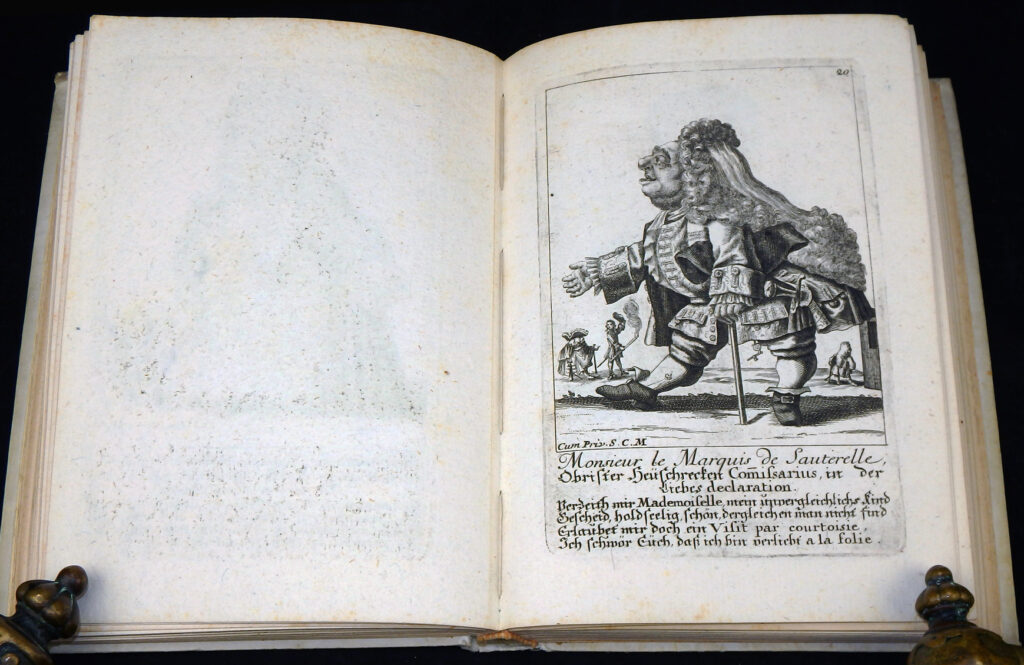 20
Cum Priv. S. C. M
Monsieur le Marquis de Sauterelle,
Obrister Heüschrecken Com̅issarius, in der
Liebes declaration.
Verzeith mir Mademoiselle, mein unvergleichlichs Kind
Gescheid, holdseelig, schön, dergleichen man nicht find
Erlaubet mir doch ein Visit par courtoisie,
Ich schwör Eüch, daß ich bin verliebt a la folie.